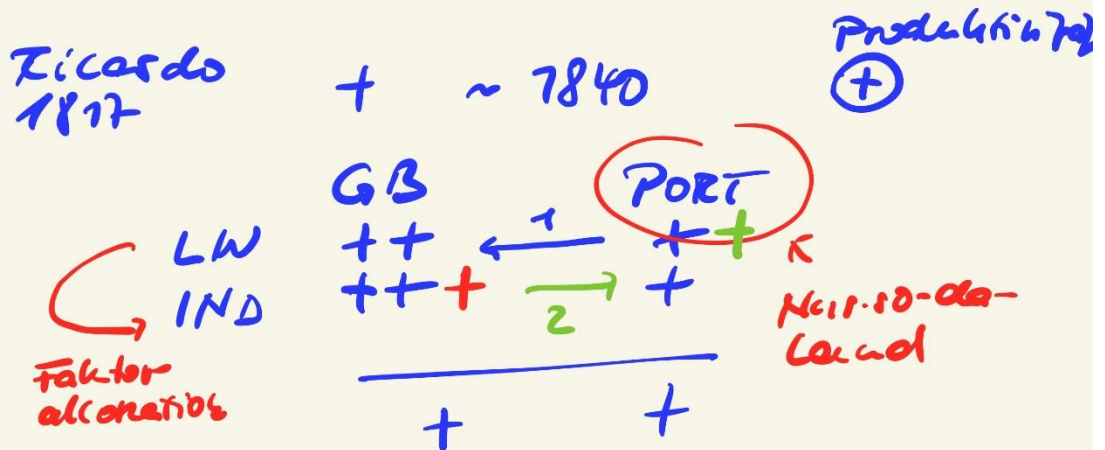 Ricardo
1817
+ ~ 1840
Produktivität
+
GB PORT
LW ++ ← 1 ++
IND +++ → 2 +
Faktor
allokation
+ +